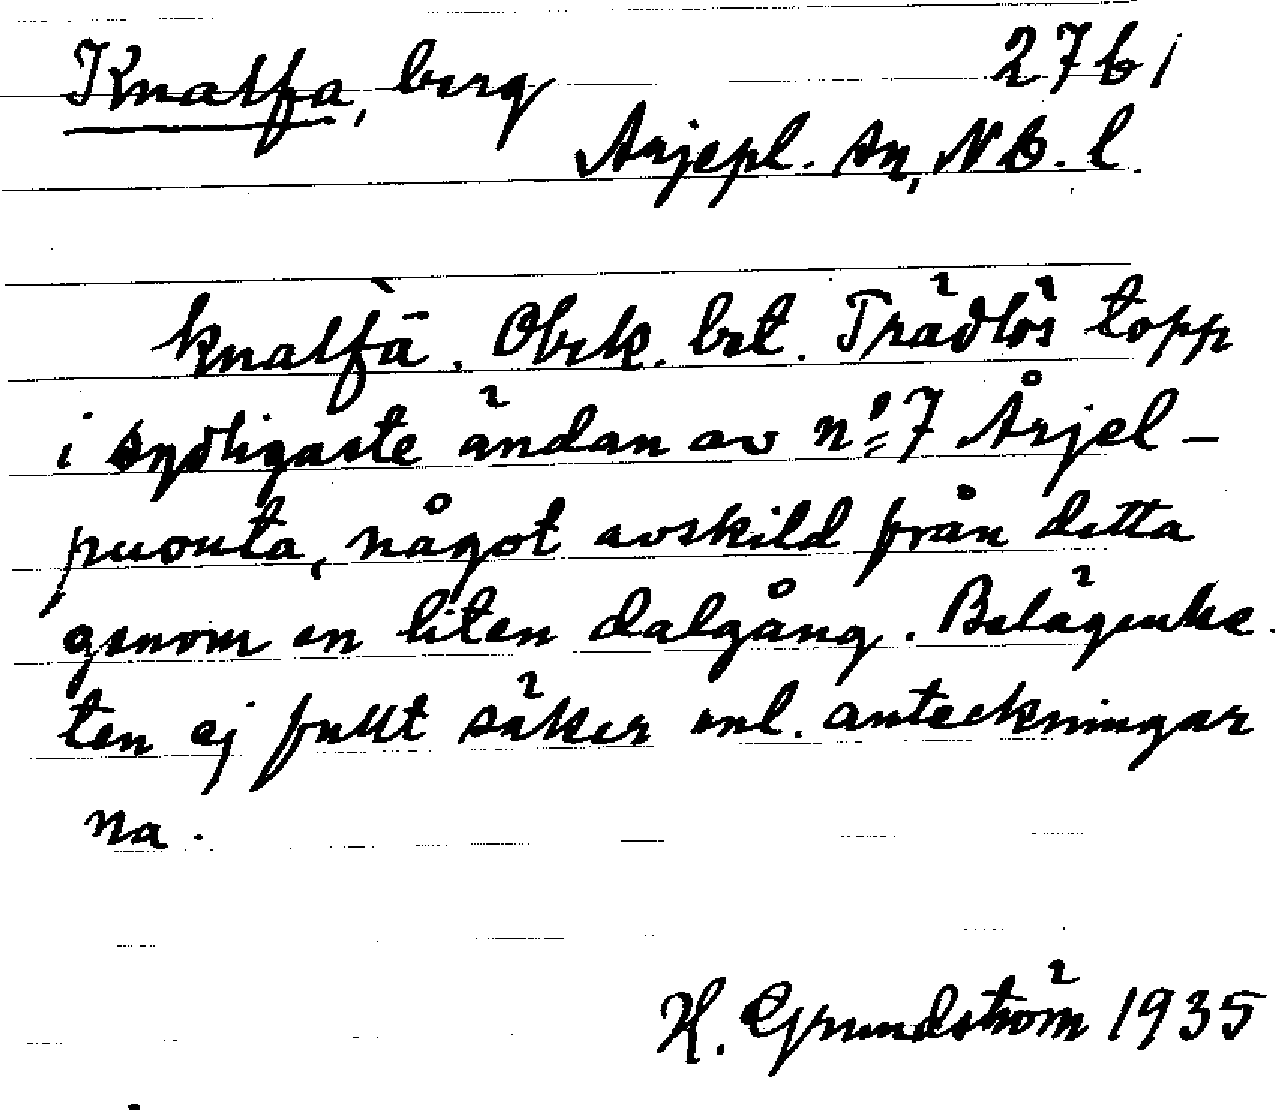 Knalfa, berg 276 1
Arjepl. sn, N b. l.
knàlfā. Obek. bet. Trädlös topp
i sydligaste ändan av nº 7 Årjel-
puouta, något avskild från detta
genom en liten dalgång. Belägenhe-
ten ej fullt säker enl. anteckningar
na.
H. Grundström 1935